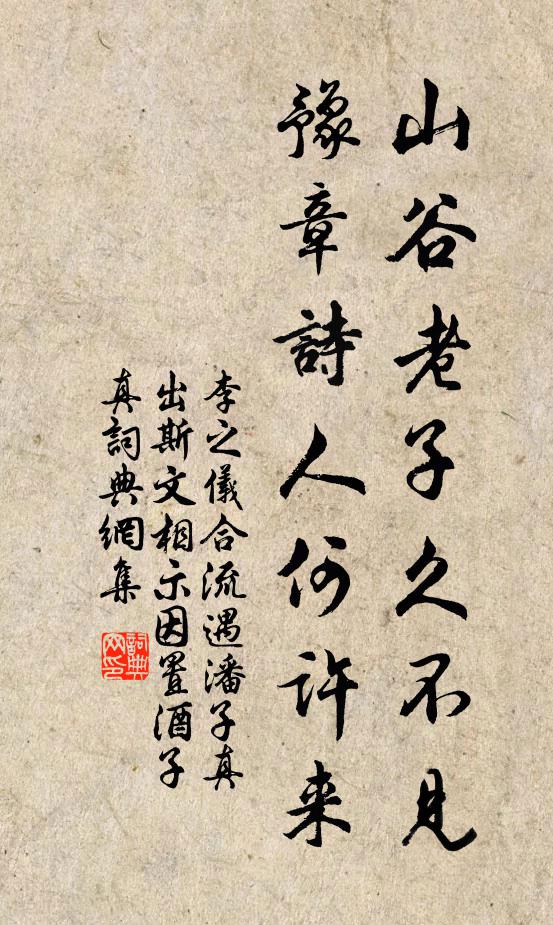 山谷老子久不見
豫章詩人何許来
李之儀合流遇潘子真
出斯文相示因置酒子
真詞典網集
詞典网印